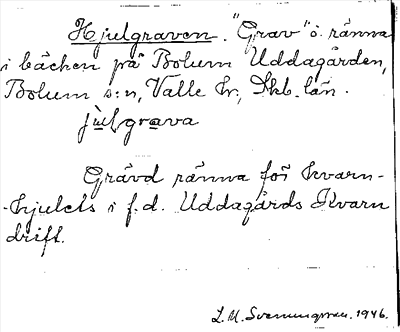 Hjulgraven. "Grav" o. ränna
i bäcken på Bolum Uddagården,
Bolum s:n, Valle hr, Skb. län.
jùlgrava
Grävd ränna för kvarn-
-hjulets i f.d. Uddagårds Kvarn
drift.
L. M. Svenungsson. 1946.